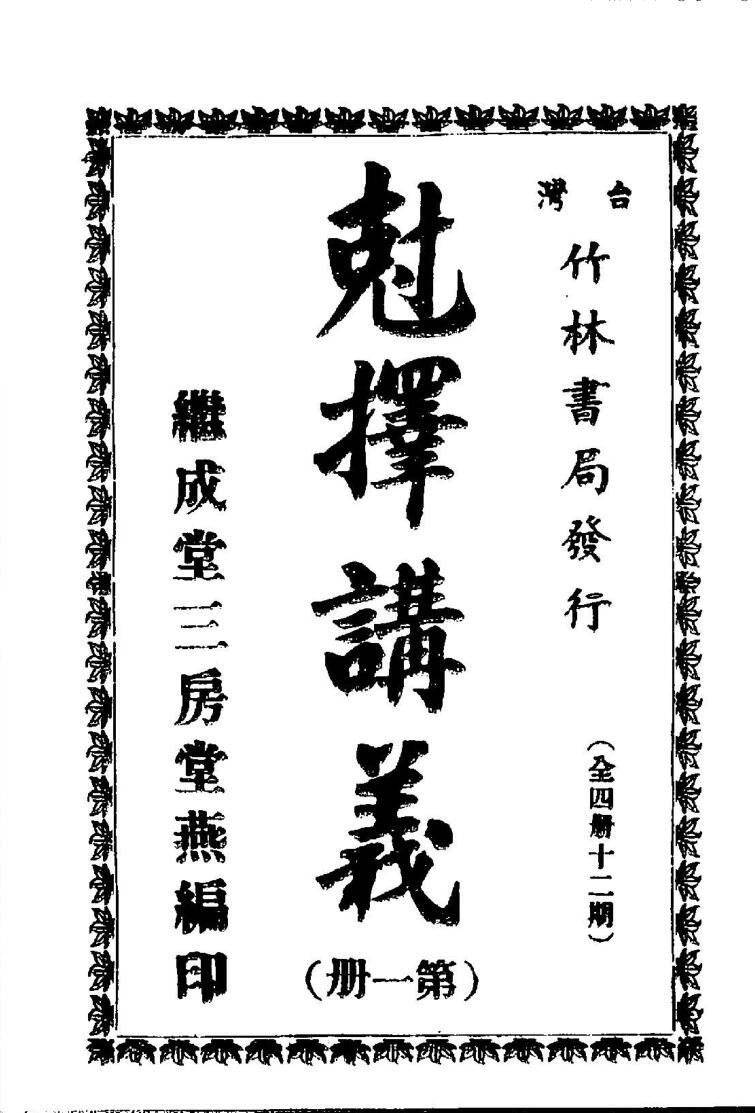 台灣
竹林書局發行
(全四册十二期)
尅擇講義
(第一册)
繼成堂三房堂燕編印